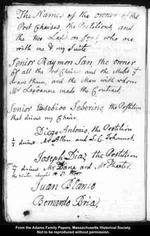 The Names of the owner of the
Post Chaises the Postilions and
the two Lads on foot who are
with me & my suite
Senior Raymon San the owner
of all the Post Chaises and the Mules &
them, and the Man with whom
Mr Lagoanere made the Contract
Senior Eusebio Seberino the Postilion
that drives my Chaise
Diego Antonio the Postilion
Mr Allen and S. C. Johonnot
Joseph Diaz the Postilion
Mr Dana and Mr Thaxter
Juan Blanco
Bernardo Bria
From the Adams Family Papers, Massachusetts Historical Society.
Not to be reproduced without permission.